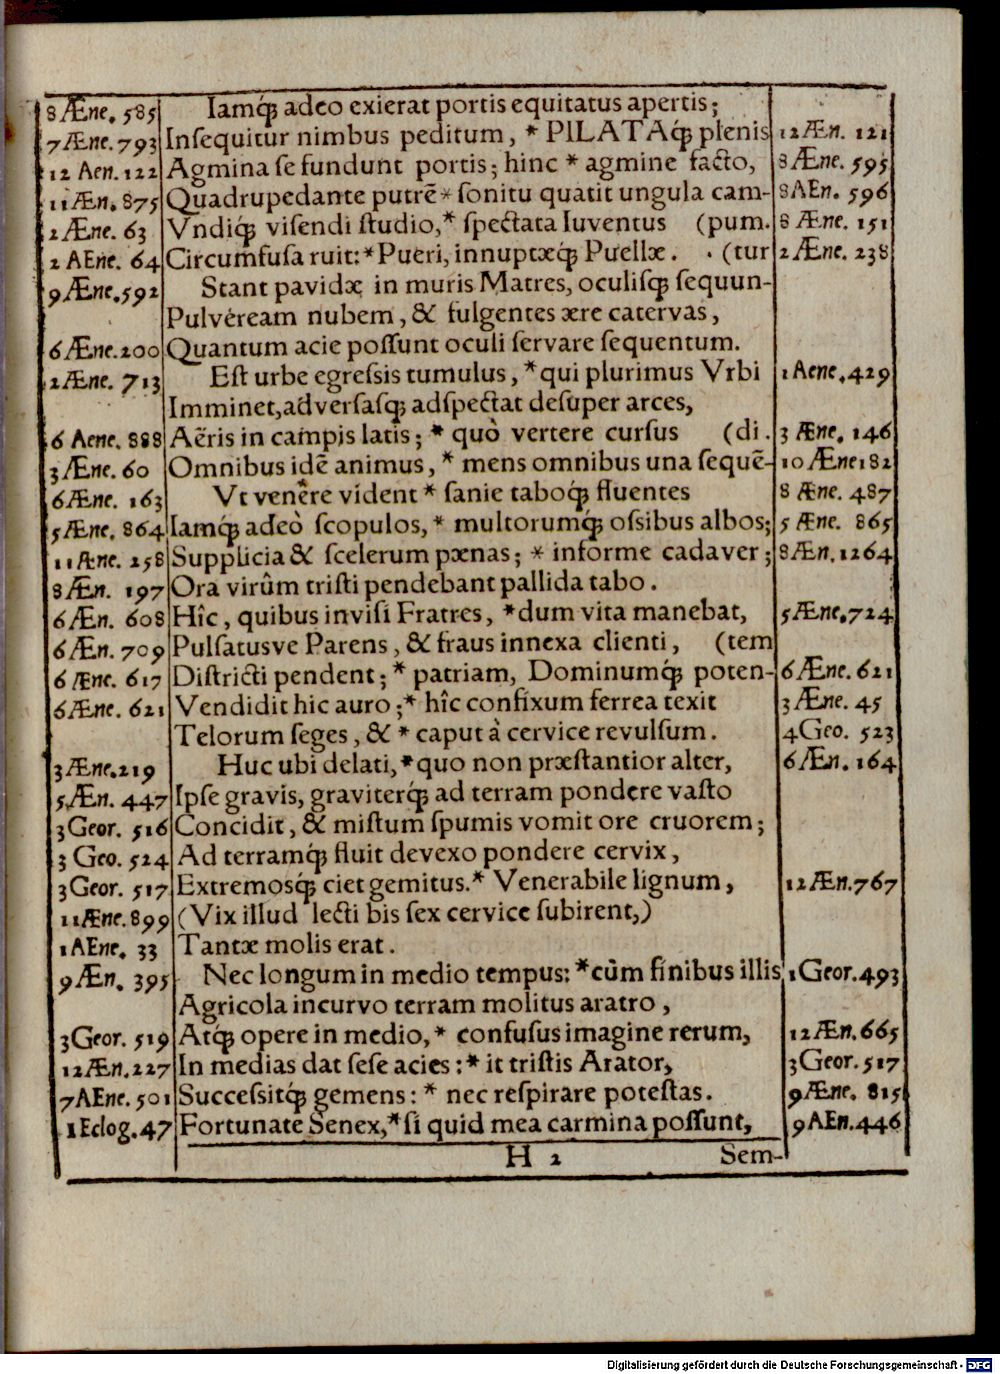 8 Æne. 585 Iamq́; adeo exierat portis equitatus apertis;
7 Æne. 793 Insequitur nimbus peditum, * PILATAq́; plenis 12 Æn. 121
12 Aen. 122 Agmina se fundunt portis; hinc * agmine facto, 8 Æne. 595
11 Æn. 875 Quadrupedante putrē * sonitu quatit ungula cam- 8 AEn. 596
2 Æne. 63 Vndiq́; visendi studio, * spectata Iuventus (pum. 8 Æne. 151
2 AEne. 64 Circumfusa ruit: * Pueri, innuptæq́; Puellæ. . (tur 2 Æne. 238
9 Æne. 592 Stant pavidæ in muris Matres, oculisq́; sequun-
Pulvéream nubem, & fulgentes ære catervas,
6 Æne. 200 Quantum acie possunt oculi servare sequentum.
2 Æne. 713 Est urbe egressis tumulus, * qui plurimus Vrbi 1 Aene. 429
Imminet, adversasq; adspectat desuper arces,
6 Aene. 888 Aëris in campis latis; * quò vertere cursus (di. 3 Æne. 146
3 Æne. 60 Omnibus idē animus, * mens omnibus una sequē- 10 Æne 182
6 Æne. 163 Vt venêre vident * sanie taboq́; fluentes 8 Æne. 487
5 Æne. 864 Iamq́; adeò scopulos, * multorumq́; ossibus albos; 5 Æne. 865
11 Æne. 258 Supplicia & scelerum pænas; * informe cadaver; 8 Æn. 1264
8 Æn. 197 Ora virûm tristi pendebant pallida tabo.
6 Æn. 608 Hîc, quibus invisi Fratres, * dum vita manebat, 5 Æne. 724
6 Æn. 709 Pulsatusve Parens, & fraus innexa clienti, (tem
6 Æne. 617 Districti pendent; * patriam, Dominumq́; poten- 6 Æne. 621
6 Æne. 621 Vendidit hic auro; * hîc confixum ferrea texit 3 Æne. 45
Telorum seges, & * caput à cervice revulsum. 4 Geo. 523
3 Æne. 219 Huc ubi delati, * quo non præstantior alter, 6 Æn. 164
5 Æn. 447 Ipse gravis, graviterq́; ad terram pondere vasto
3 Geor. 516 Concidit, & mistum spumis vomit ore cruorem;
3 Geo. 524 Ad terramq́; fluit devexo pondere cervix,
3 Geor. 517 Extremosq́; ciet gemitus. * Venerabile lignum, 12 Æn. 767
11 Æne. 899 (Vix illud lecti bis sex cervice subirent,)
1 AEne. 33 Tantæ molis erat.
9 Æn. 395 Nec longum in medio tempus: * cùm finibus illis 1 Geor. 493
Agricola incurvo terram molitus aratro,
3 Geor. 519 Atq́; opere in medio, * confusus imagine rerum, 12 Æn. 665
12 Æn. 227 In medias dat sese acies: * it tristis Arator, 3 Geor. 517
7 AEne. 501 Successitq́; gemens: * nec respirare potestas. 9 Æne. 815
1 Eclog. 47 Fortunate Senex, * si quid mea carmina possunt, 9 AEn. 446
H 2 Sem-
Digitalisierung gefördert durch die Deutsche Forschungsgemeinschaft - DFG